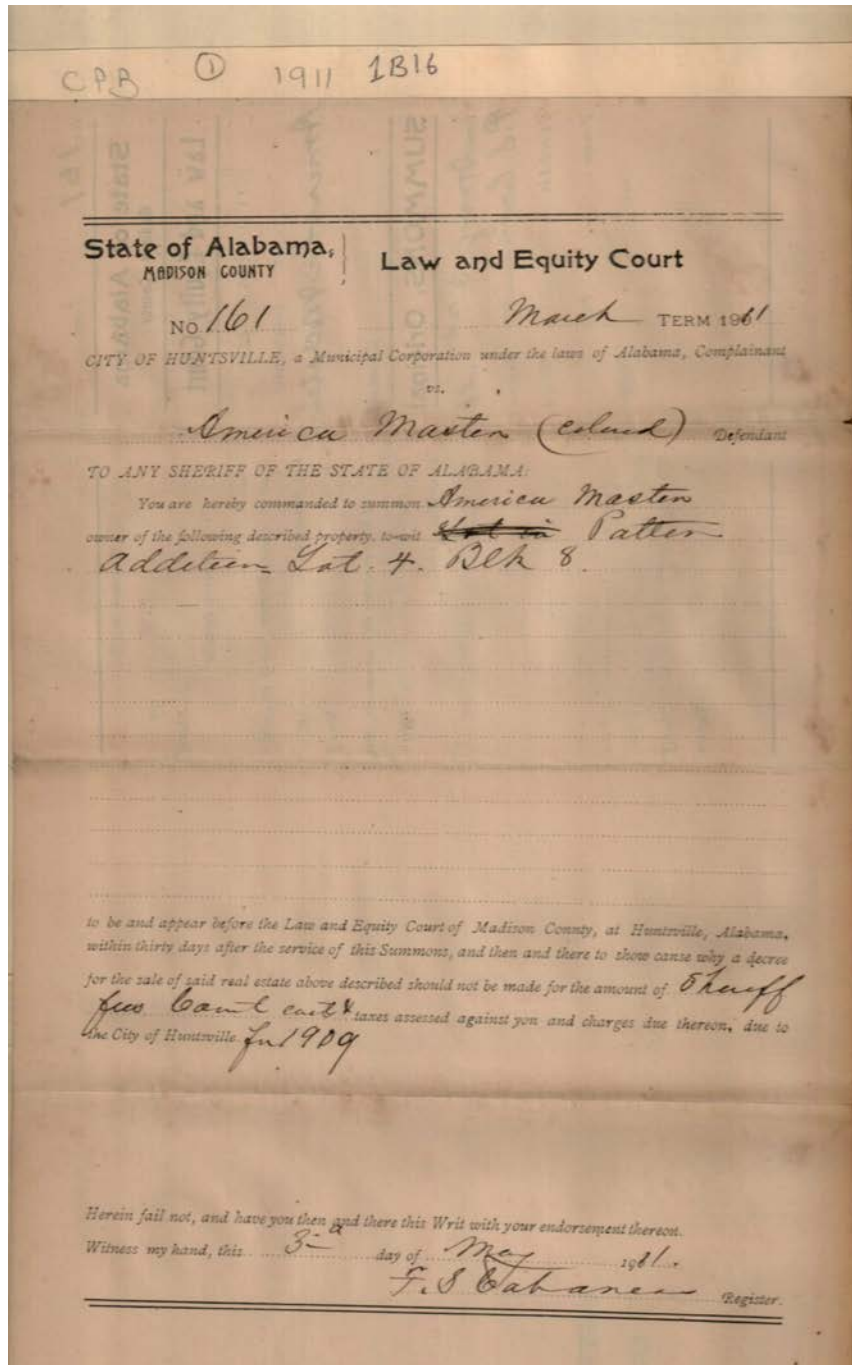 CPB ① 1911 1B16
State of Alabama, Law and Equity Court
MADISON COUNTY
No 161 March TERM 1911
CITY OF HUNTSVILLE, a Municipal Corporation under the laws of Alabama, Complainant
vs.
America Masten (colored) Defendant
TO ANY SHERIFF OF THE STATE OF ALABAMA:
You are hereby commanded to summon America Masten
owner of the following described property, to-wit Patten
Addition Lot 4. Blk 8.
to be and appear before the Law and Equity Court of Madison County, at Huntsville, Alabama,
within thirty days after the service of this Summons, and then and there to show cause why a decree
for the sale of said real estate above described should not be made for the amount of Sheriff
fees Court cost & taxes assessed against you and charges due thereon, due to
the City of Huntsville for 1909
Herein fail not, and have you then and there this Writ with your endorsement thereon.
Witness my hand, this 3rd day of May 1911.
F. S Cabaness Register.